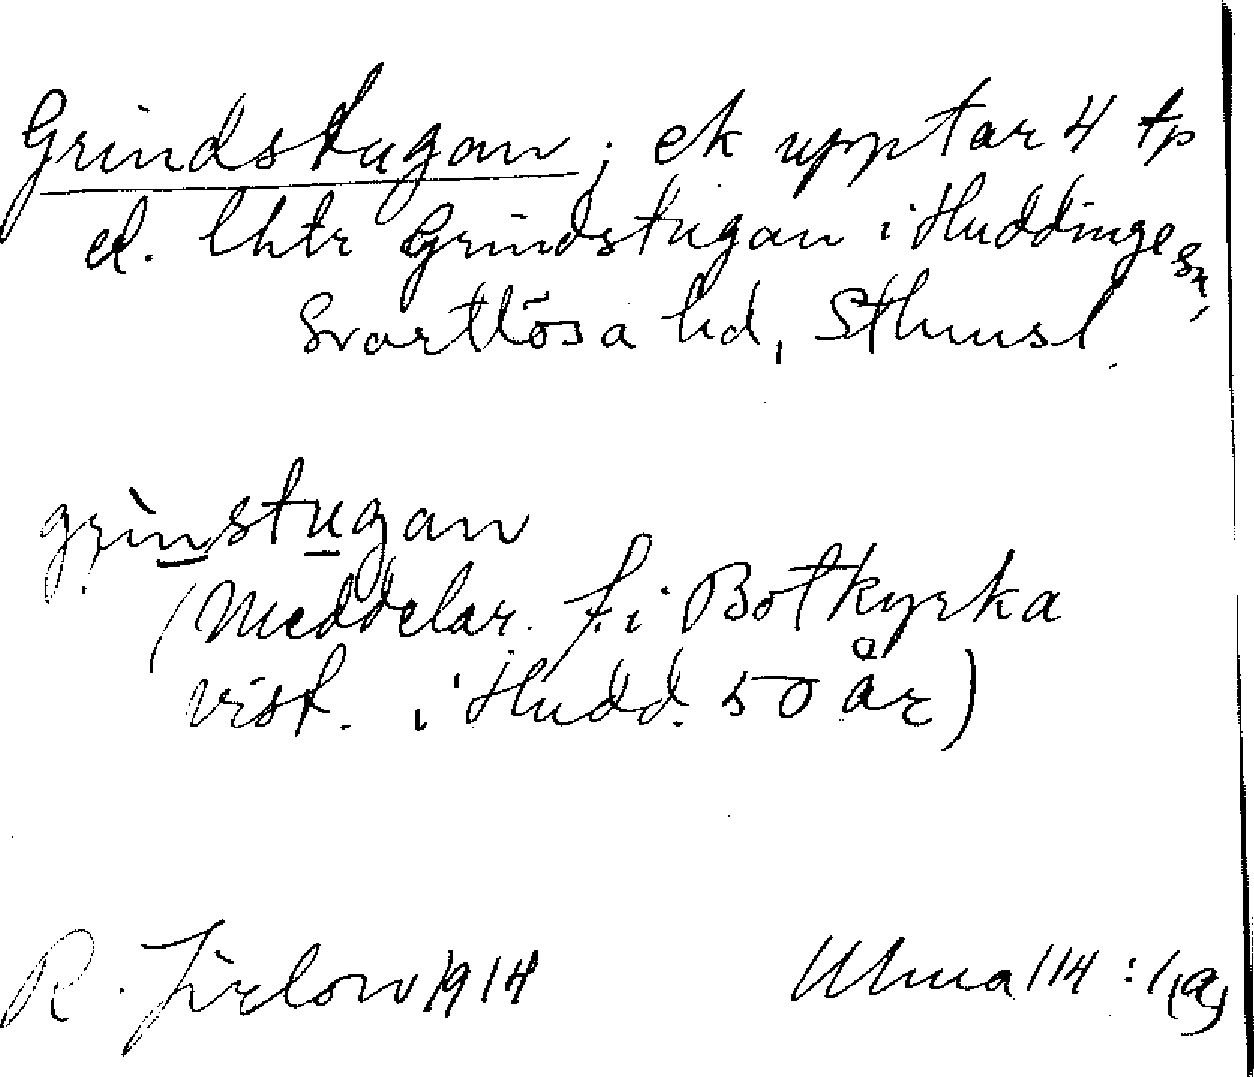 Grindstugan; ek upptar 4 tp
el. lhtr Grindstugan i Huddinge sn,
Svartlösa hd, Sthmsl.
grìnstugan
(Meddelar. f. i Botkyrka
vist. i Hudd. 50 år)
R. Jirlow 1914
Ulma 114:1(a)